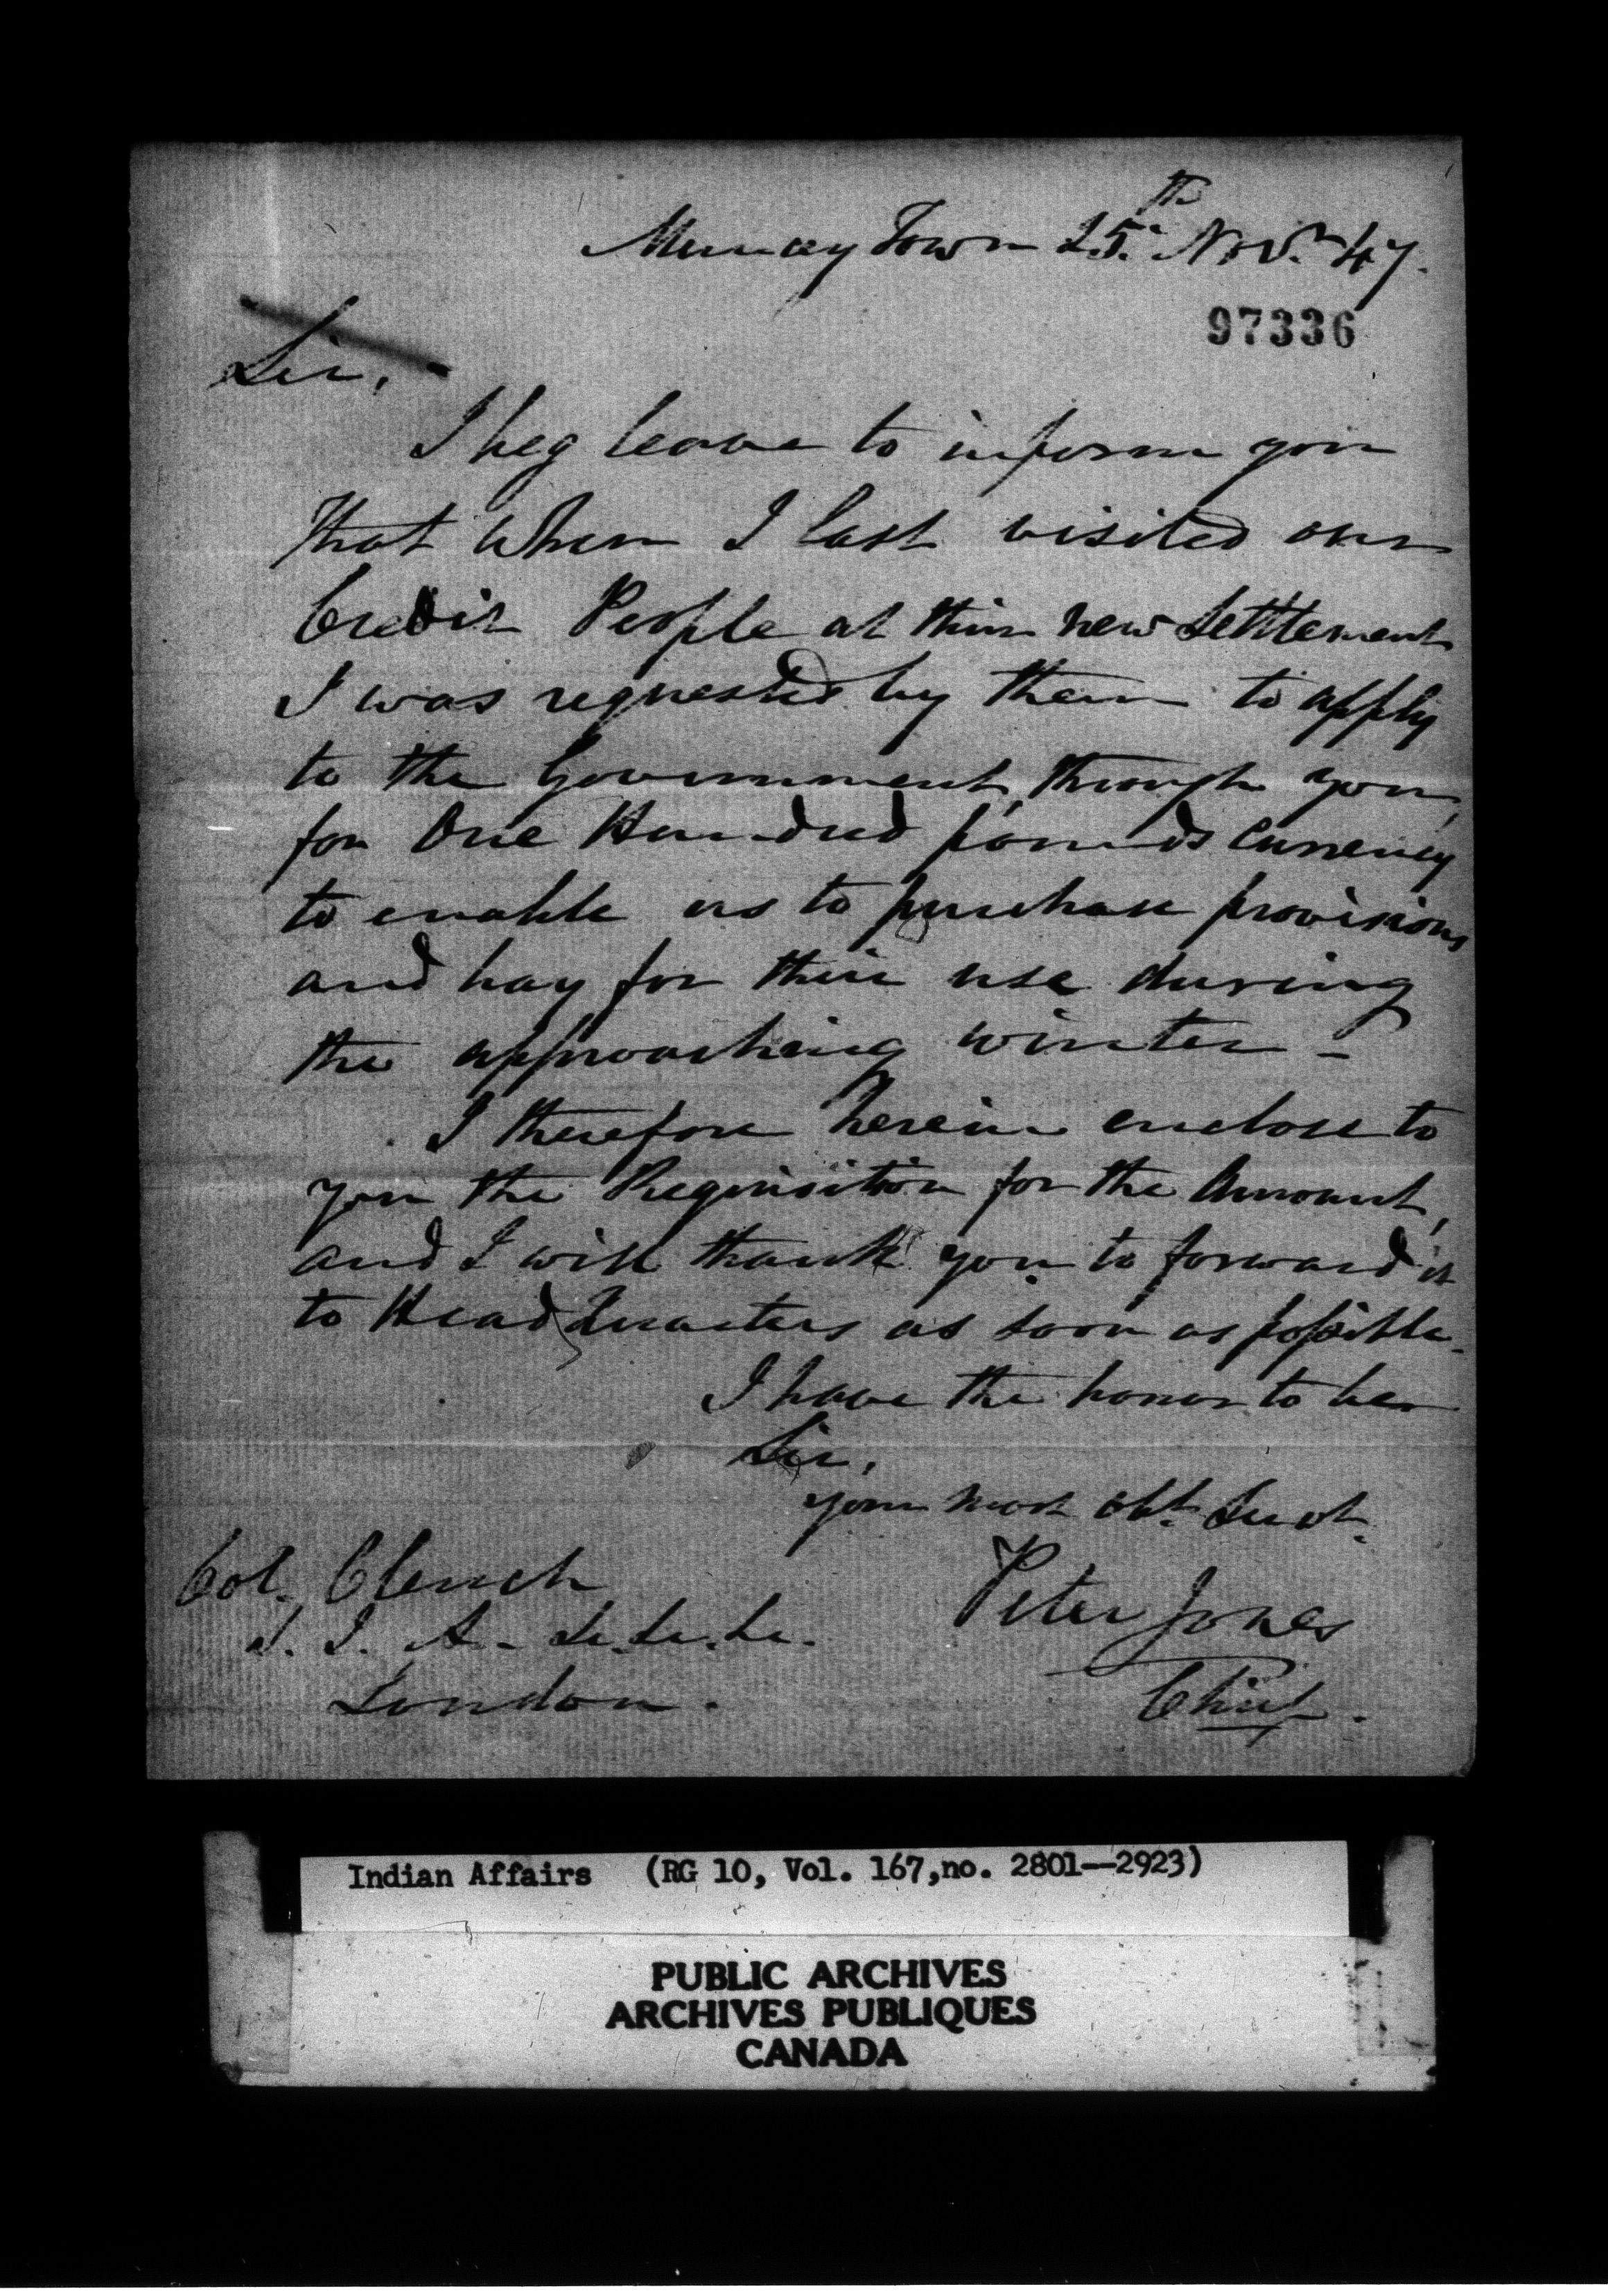 Muncey Town 25th Nov. 47.
97336
Sir,
I beg leave to inform you
that when I last visited our
Credit People at their new Settlement
I was requested by them to apply
to the Government, through you,
for One Hundred pounds Currency
to enable us to purchase provisions
and hay for their use during
the approaching winter -
I therefore herein enclose to
you the Requisition for the Amount,
and I will thank you to forward it
to Head Quarters as soon as possible.
I have the honor to be
Sir,
your most obt. Servt.
Peter Jones
Chief.
Col. Clench
S. I. A. &c. &c. &c.
London.
Indian Affairs (RG 10, Vol. 167,no. 2801--2923)
PUBLIC ARCHIVES
ARCHIVES PUBLIQUES
CANADA